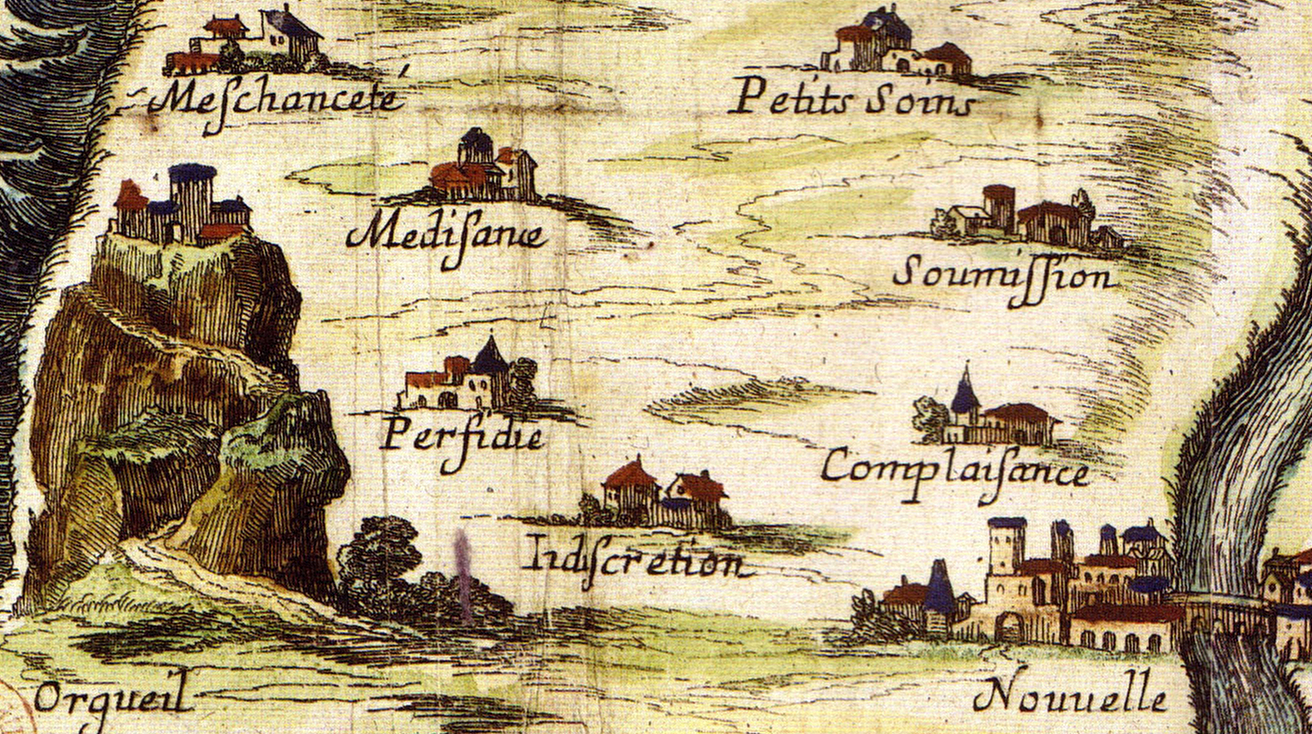 Meſchanceté
Petits Soins
Mediſance
Soumiſſion
Perfidie
Complaiſance
Indiſcretion
Orgueil
Nouuelle